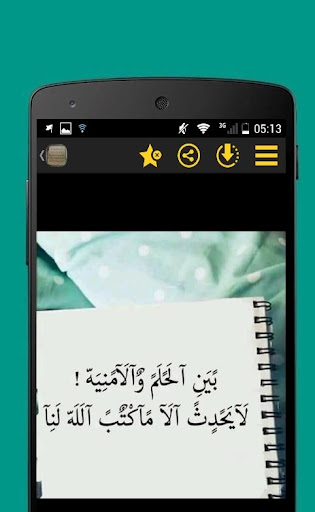 3G 05:13
بَيَنِ آلَحًلَمً وٌآلَآمًنِيَة !
لَآيَحًدٍثًَ آلَآ مًآکْتٌبًَ آلَلَهّ لَنِآ